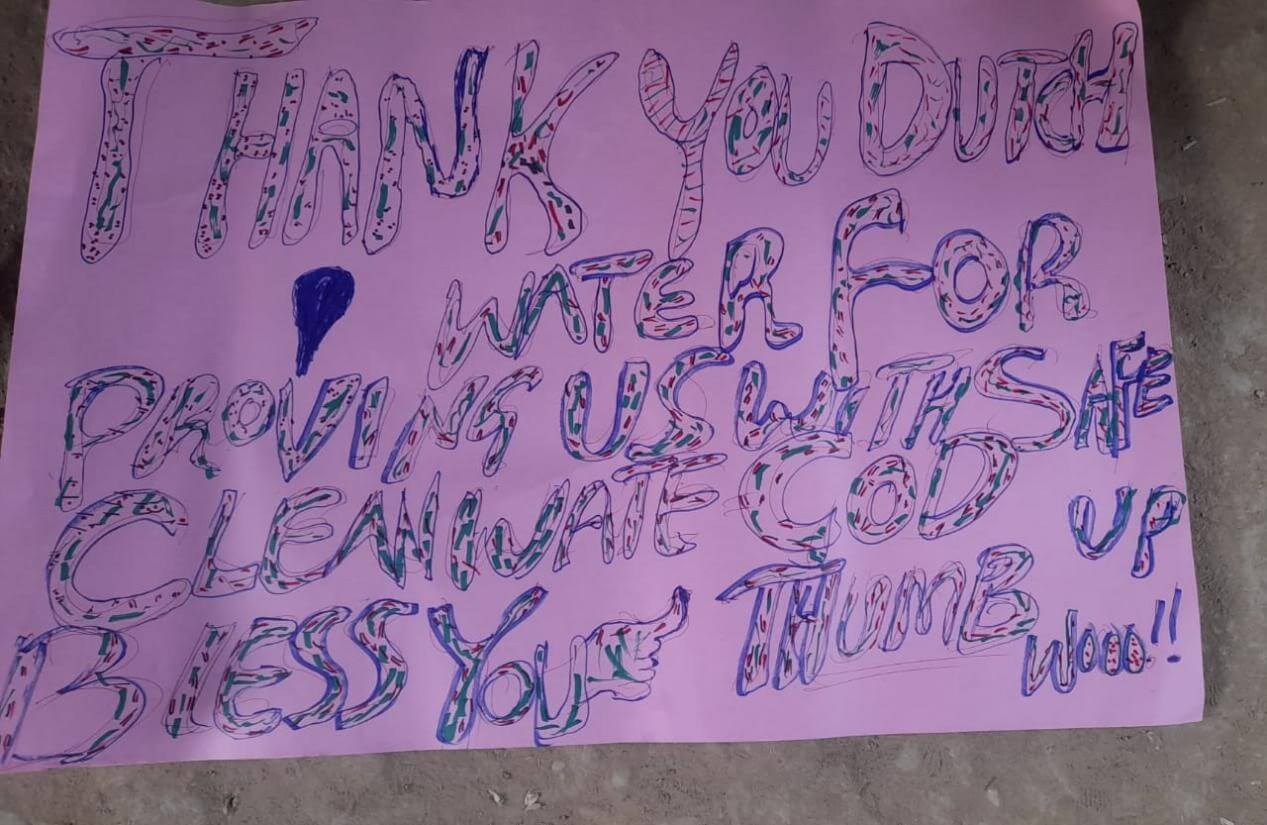 THANK YOU DUTCH
WATER FOR
PROVING US WITH SAFE
CLEAN WATE GOD UP
BLESS YOU THUMB WOOO!!